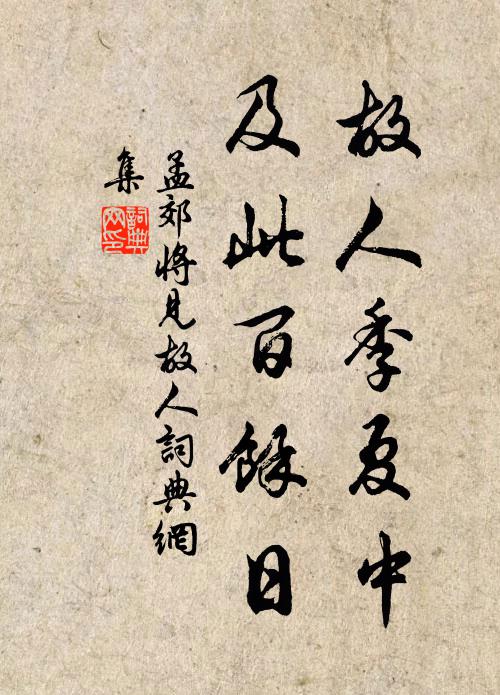 故人季夏中
及此百餘日
孟郊將見故人詞典網
集
詞典
网印